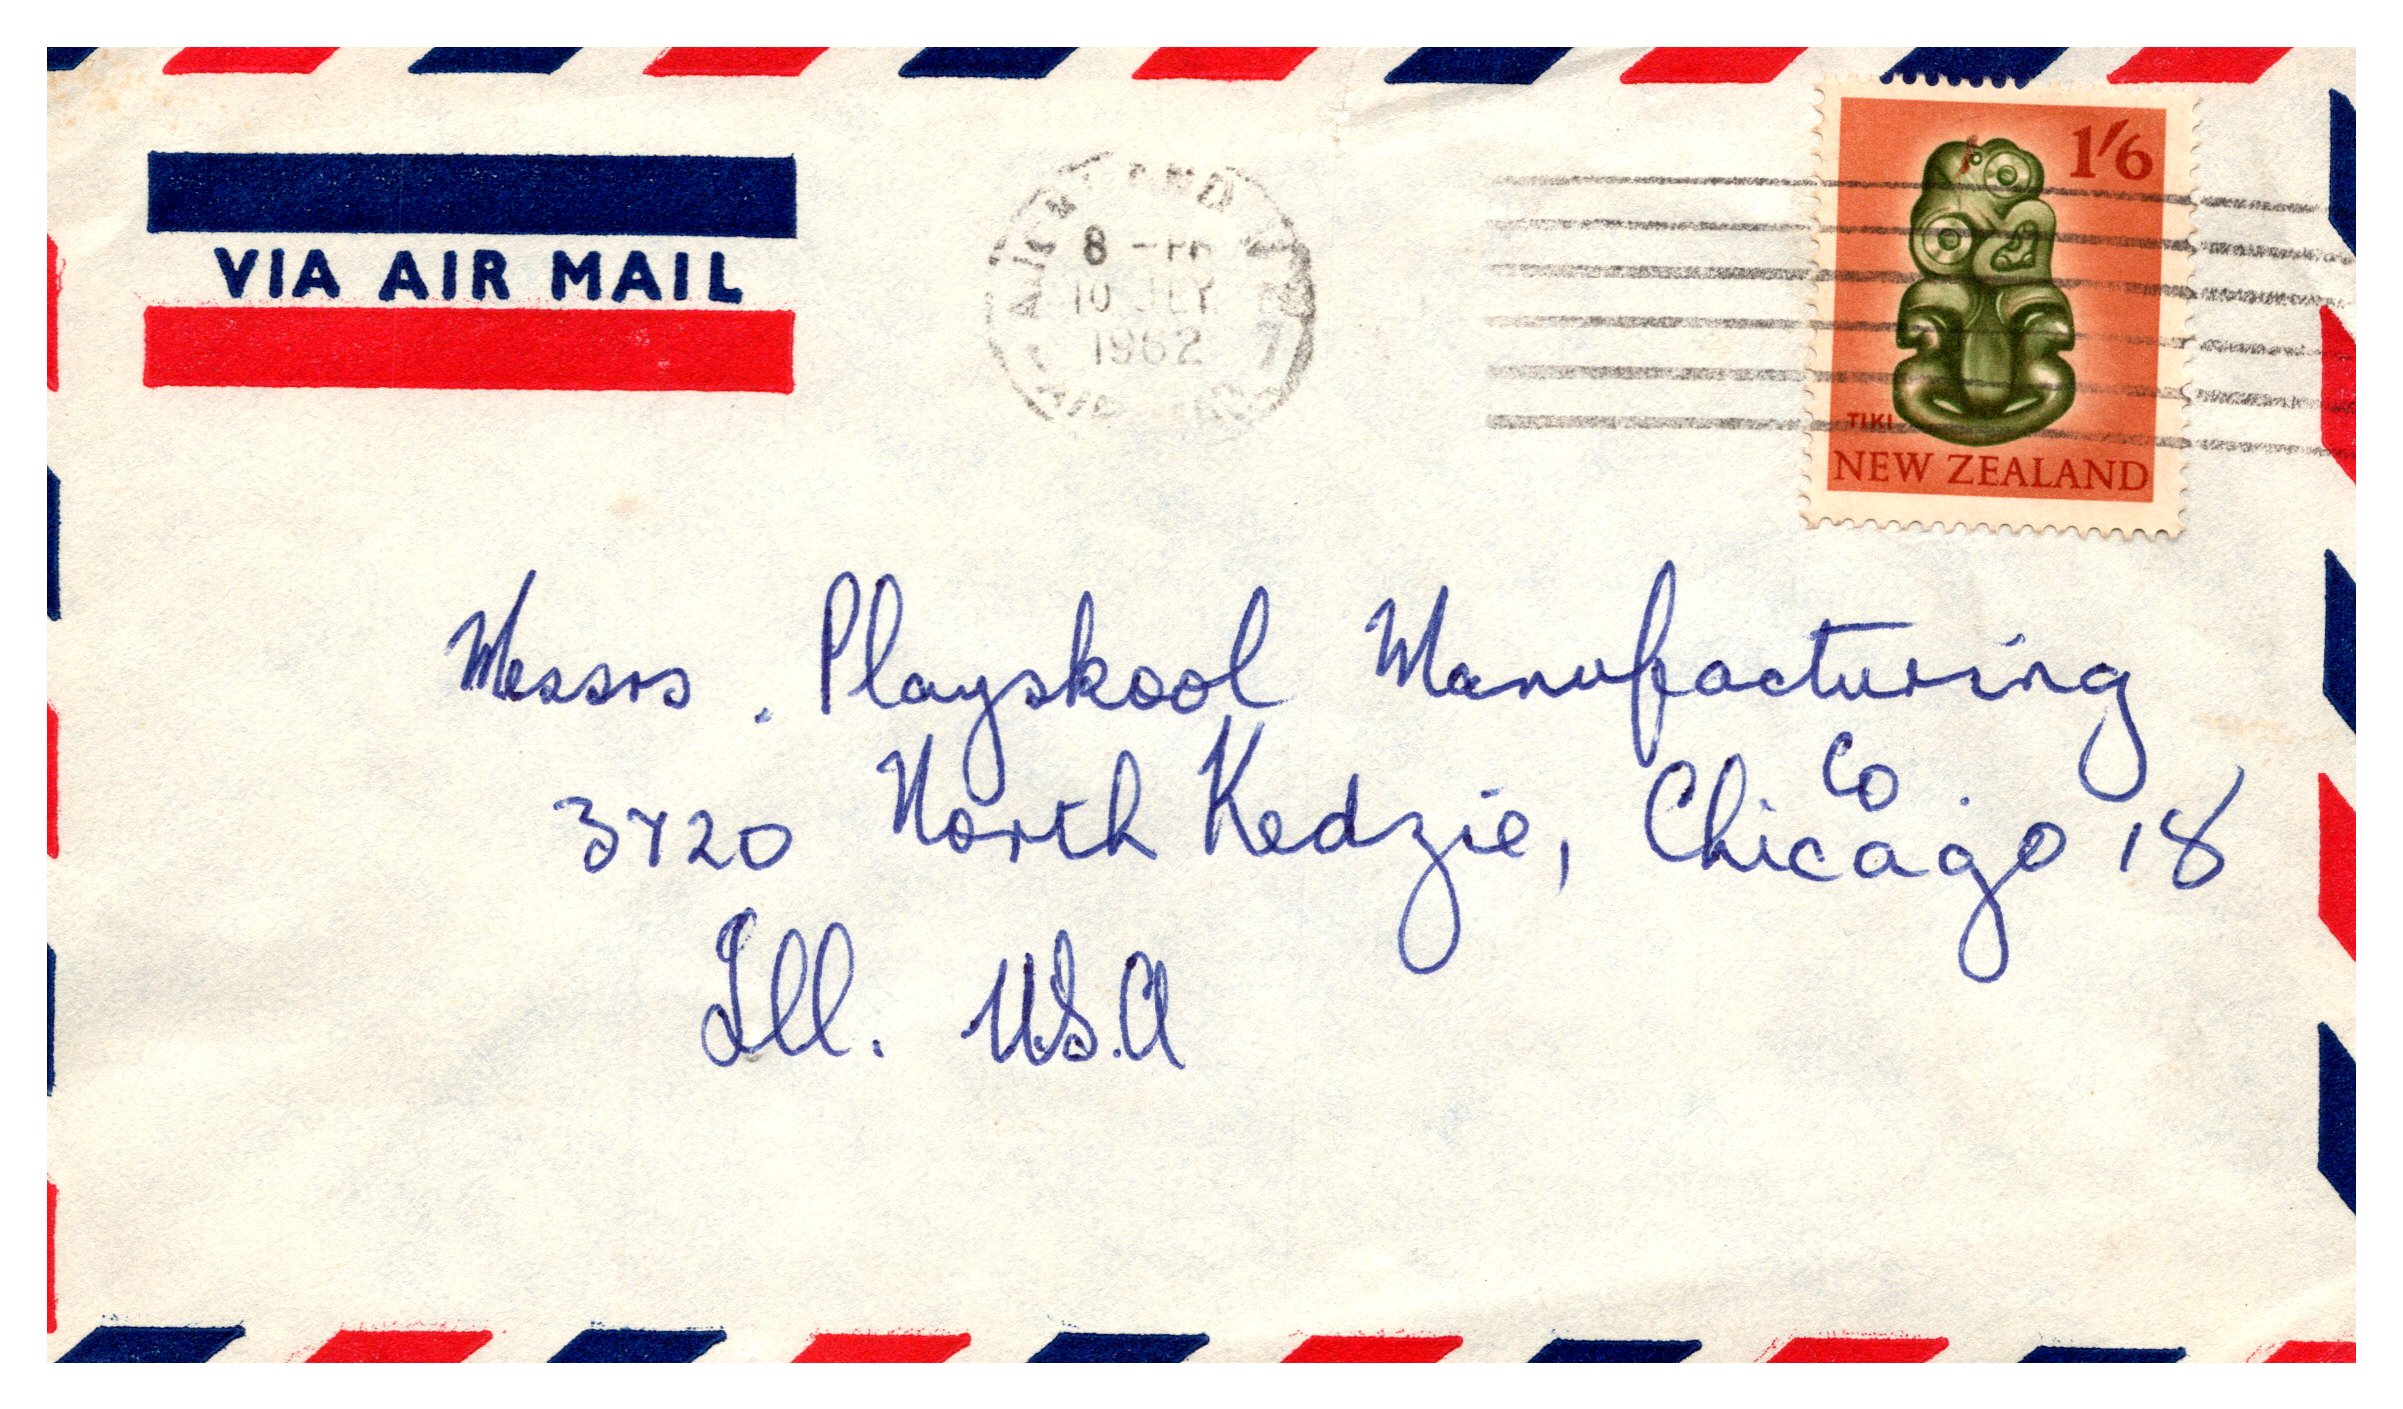 VIA AIR MAIL
AUCKLAND N.Z.
8 - PM
10 JLY
1962
7
1'6
TIKI
NEW ZEALAND
Messrs. Playskool Manufacturing
Co
3720 North Kedzie, Chicago 18
Ill. U.S.A